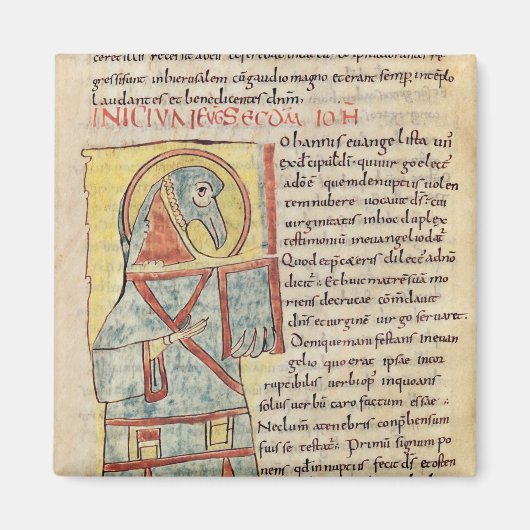 gressisunt inhierusalem cũgaudio magno et erant semp̱ intẽplo
Laudantes et benedicentes dñm;
INICIUM EUG̃ SECDM IOH̃
Iohannis euangelista un'
ex dicipulis dī quiuirgo elect'
adõe quem denuptiis uolen
tem nubere uocauit ds̃; cui
uirginitatis inhoc duplex
testimonium ineuangelio dat̃
Quod et p̱ceteris dilect' adño
dicit̃; Et huic matrẽ suã mo
riens decruce cõmdauit
dñs et uirginẽ uirgo seruaret;
Denique manifestans ineuan
gelio quo erat ipsae incor
ruptibilis uerbi op̱' inquoans
solus uerbũ caro factum essae;
Nec lum̃ atenebris conp̱hensum
fuisse testat̃; Primũ signum po
nens qd̃ innuptiis fecit ds̃ et osten